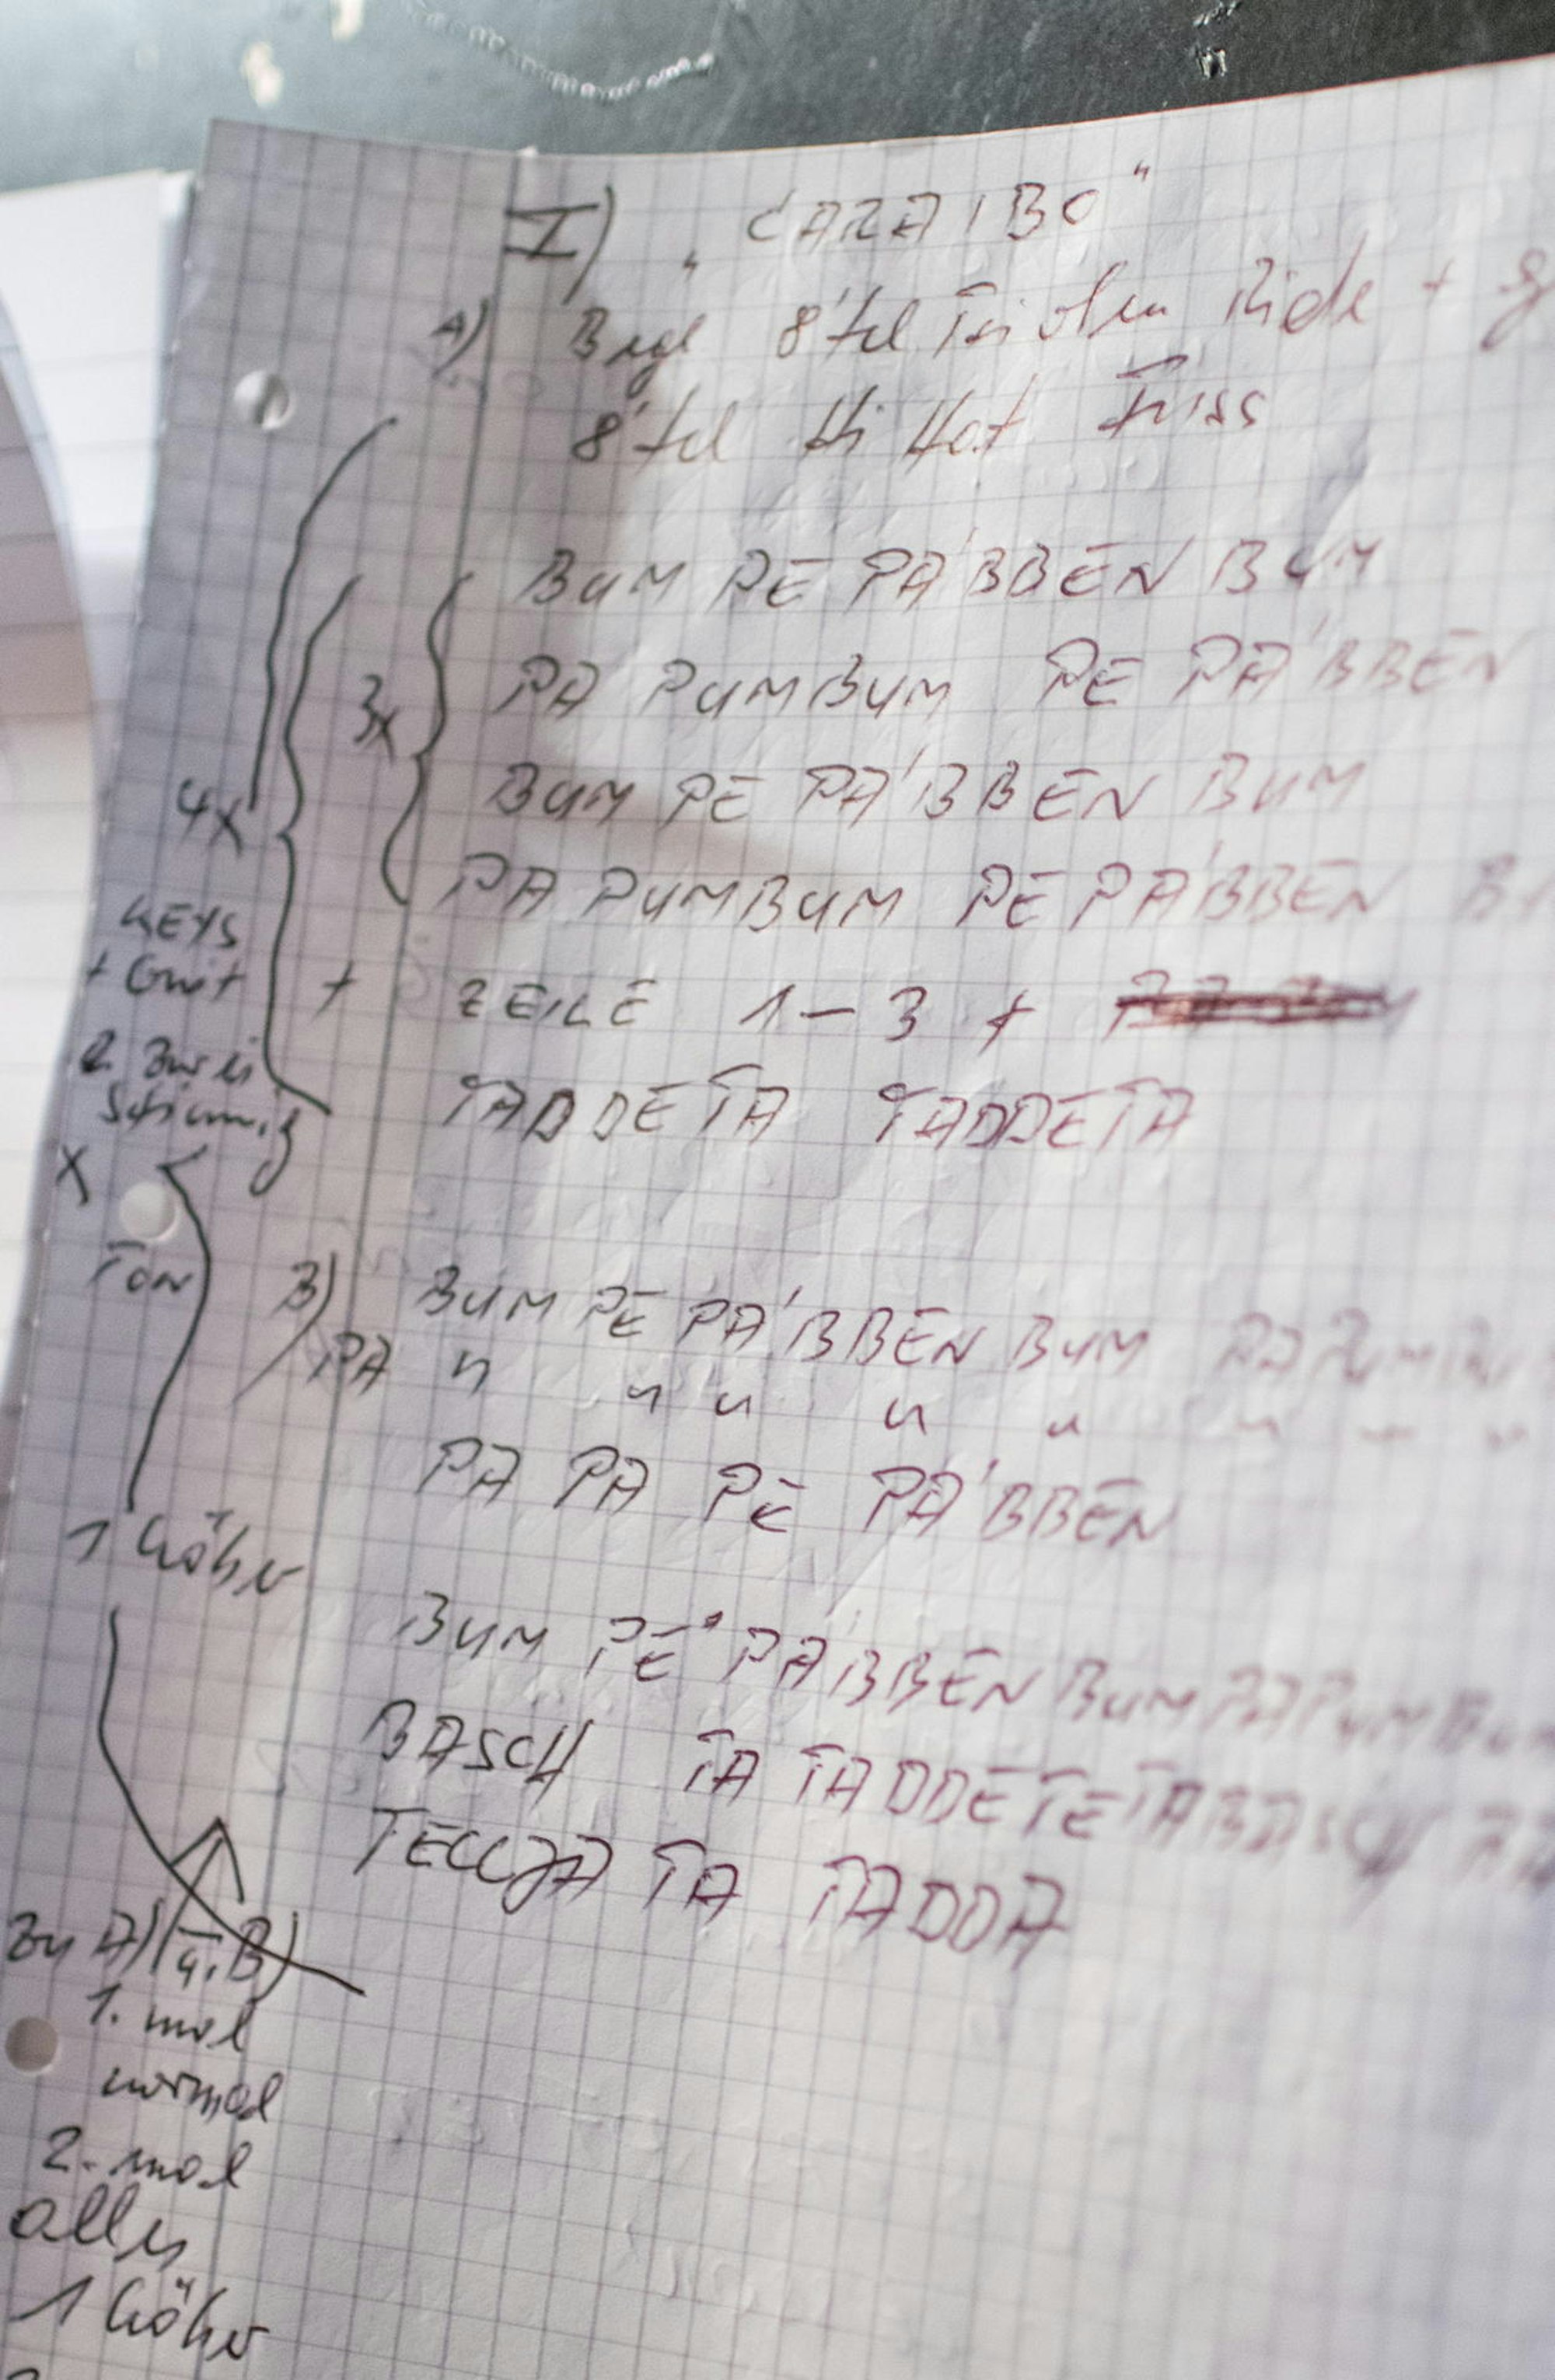 I) „CARAIBO"
A) Begl 8'tel Triolen Ride +
8'tel Hi Hat Friss
BUM PE PA'BBEN BUM
3x PA PUMBUM PE PA'BBEN
BUM PE PA'BBEN BUM
4x PA PUMBUM PE PA'BBEN
KEYS
+ Guit
+ ZEILE 1-3 +
2. zwei
stimmig
TADDETA TADDETA
X
TON
B) BUM PE PA'BBEN BUM PAPUMBU
PA " " " " " " " "
PA PA PE PA'BBEN
1 höher
BUM PE PA'BBEN BUM PAPUMBUM
BASCH TA TADDETETABASCH
TECCJA TA TADDA
zu A) (u. B)
1. mal
normal
2. mal
alles
1 höher